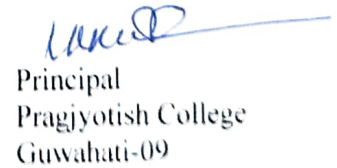 Principal
Pragjyotish College
Guwahati-09